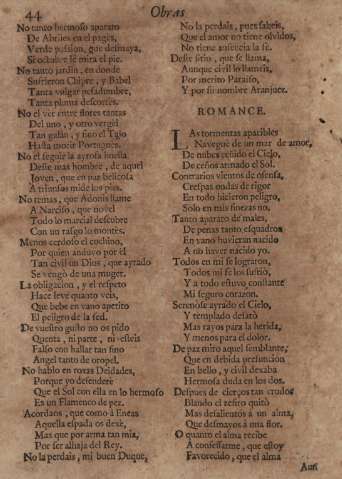 44
Obras
No tanto hermoso aparato
De Abriles en el pages,
Verde passion, que desmaya,
Si octubre se mira el pie.
No tanto jardin, en donde
Sufrieron Chipre, y Babel
Tanta vulgar pesadumbre,
Tanta pluma descortès.
No el ver entre flores tantas
Del uno, y otro vergel
Tan galàn, y fino el Tajo
Hasta morir Portuguès.
No el seguir la ayrosa huella
Deste mas hombre, de aquel
Joven, que en paz belicosa
A triunfos mide los pies.
No temas, que Adonis llame
A Narciso, que novel
Todo lo marcial descubre
Con un rasgo lo montès.
Menos cerdoso el cochino,
Por quien anduvo por èl
Tan civil un Dios, que ayrado
Se vengò de una muger.
La obligacion, y el respeto
Hace leve quanto veis,
Que bebe en vano apetito
El peligro de la sed.
De vuestro gusto no os pido
Quenta, ni parte, ni esteis
Falso con hallar tan fino
Angel tanto de oropel.
No hablo en roxas Deidades,
Porque yo defenderè
Que el Sol con ella en lo hermoso
Es un Flamenco de pez.
Acordaos, que como à Eneas
Aquella espada os dexè,
Mas que por arma tan mia,
Por ser alhaja del Rey.
No la perdais, mi buen Duque,
No la perdais, pues sabeis,
Que el amor no tiene olvidos,
No tiene ausencia la fè.
Deste sitio, que se llama,
Aunque civil lo llameis,
Por merito Paraiso,
Y por su nombre Aranjuez.
ROMANCE.
LAs tormentas apacibles
Naveguè de un mar de amor,
De nubes reñido el Cielo,
De ceños armado el Sol.
Contrarios vientos de ofensa,
Crespas ondas de rigor
En todo hicieron peligro,
Solo en mis finezas no.
Tanto aparato de males,
De penas tanto esquadron
En vano huvieran nacido
A no haver nacido yo.
Todos en mi se lograron,
Todos mi fè los sufriò,
Y a todo estuvo constante
Mi seguro corazon.
Serenòse ayrado el Cielo,
Y templado desatò
Mas rayos para la herida,
Y menos para el dolor.
De paz miro aquel semblante,
Que en debida presuncion
En bello, y civil dexaba
Hermosa duda en los dos.
Despues de cierzos tan crudos
Blando el zefiro quitò
Mas desalientos à un alma,
Que desmayos à una flor.
O quanto el alma recibe
A confessarme, que estoy
Favorecido, que el alma
Aun